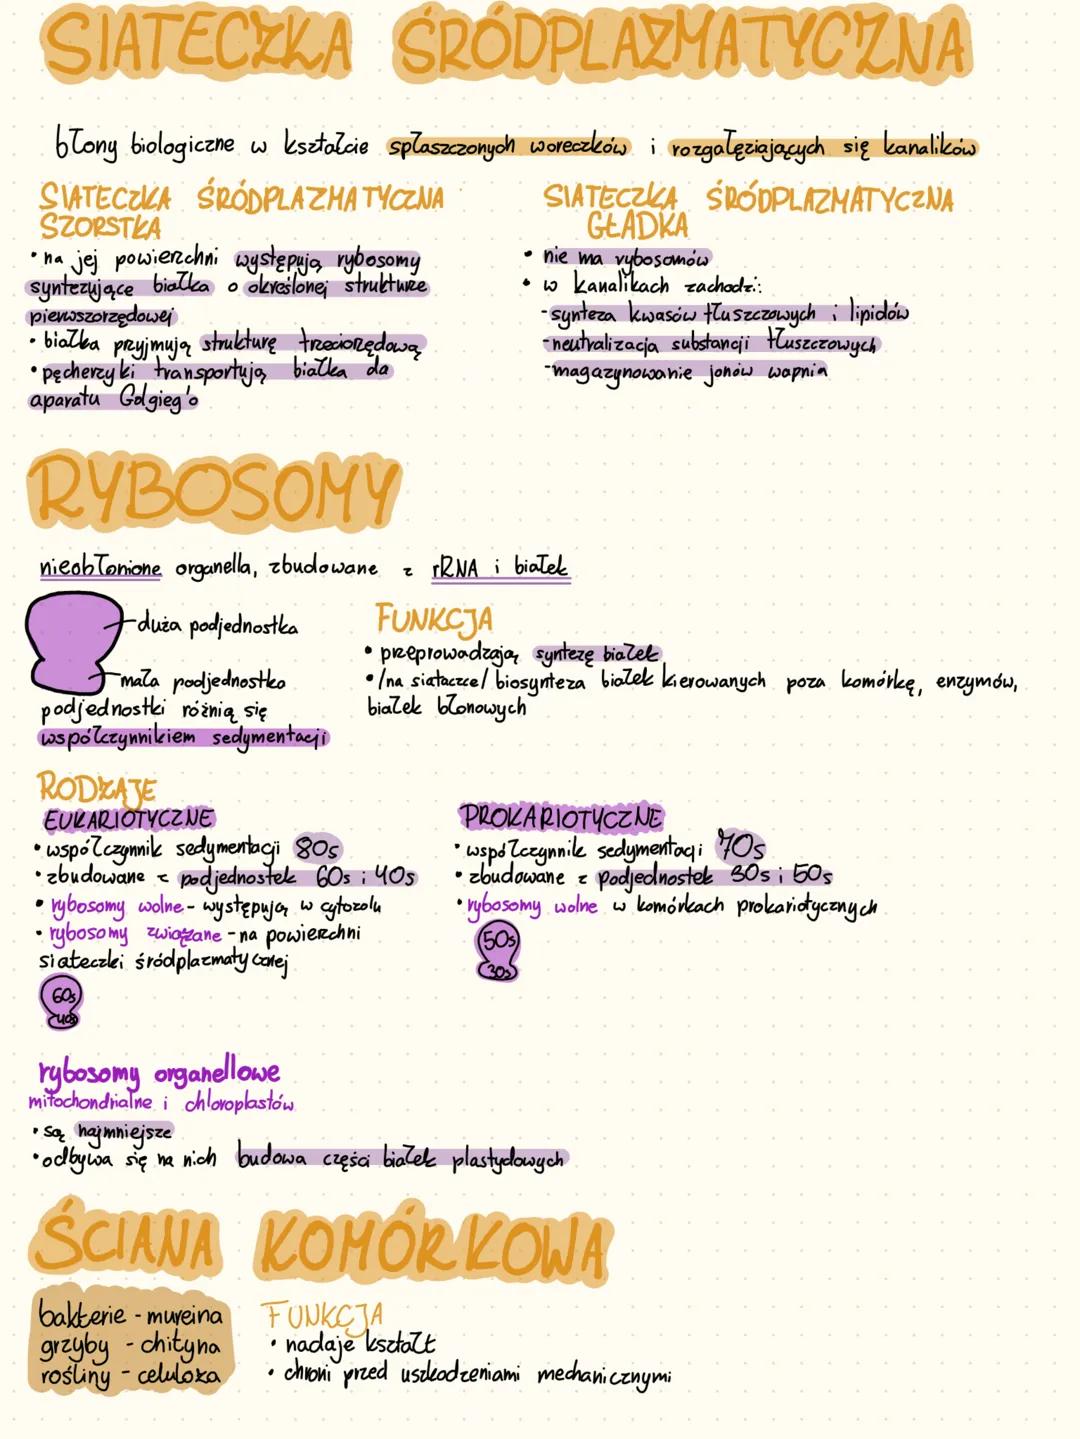 SIATECZKA ŚRÓDPLAZMATYCZNA
błony biologiczne w kształcie spłaszczonych woreczków i rozgałęziających się kanalików
SIATECZKA ŚRÓDPLAZMATYCZNA
SZORSTKA
• na jej powierzchni występują rybosomy
syntezujące białka o określonej strukturze
pierwszorzędowej
• białka przyjmują strukturę trzeciorzędową
• pęcherzyki transportują białka da
aparatu Golgieg'o
SIATECZKA ŚRÓDPLAZMATYCZNA
GŁADKA
• nie ma rybosomów
• w kanalikach zachodzi:
- synteza kwasów tłuszczowych i lipidów
- neutralizacja substancji tłuszczowych
- magazynowanie jonów wapnia
RYBOSOMY
nieobłonione organella, zbudowane z rRNA i białek
duża podjednostka
mała podjednostka
podjednostki różnią się
współczynnikiem sedymentacji
FUNKCJA
• przeprowadzają syntezę białek
• /na siateczce/ biosynteza białek kierowanych poza komórkę, enzymów,
białek błonowych
RODZAJE
EUKARIOTYCZNE
• współczynnik sedymentacji 80s
• zbudowane z podjednostek 60s i 40s
• rybosomy wolne - występują w cytozolu
• rybosomy związane - na powierzchni
siateczki śródplazmatycznej
60s
40s
PROKARIOTYCZNE
• współczynnik sedymentacji 70s
• zbudowane z podjednostek 30s i 50s
• rybosomy wolne w komórkach prokariotycznych
50s
30s
rybosomy organellowe
mitochondrialne i chloroplastów
• są najmniejsze
• odbywa się na nich budowa części białek plastydowych
ŚCIANA KOMÓRKOWA
bakterie - mureina
grzyby - chityna
rośliny - celuloza
FUNKCJA
• nadaje kształt
• chroni przed uszkodzeniami mechanicznymi